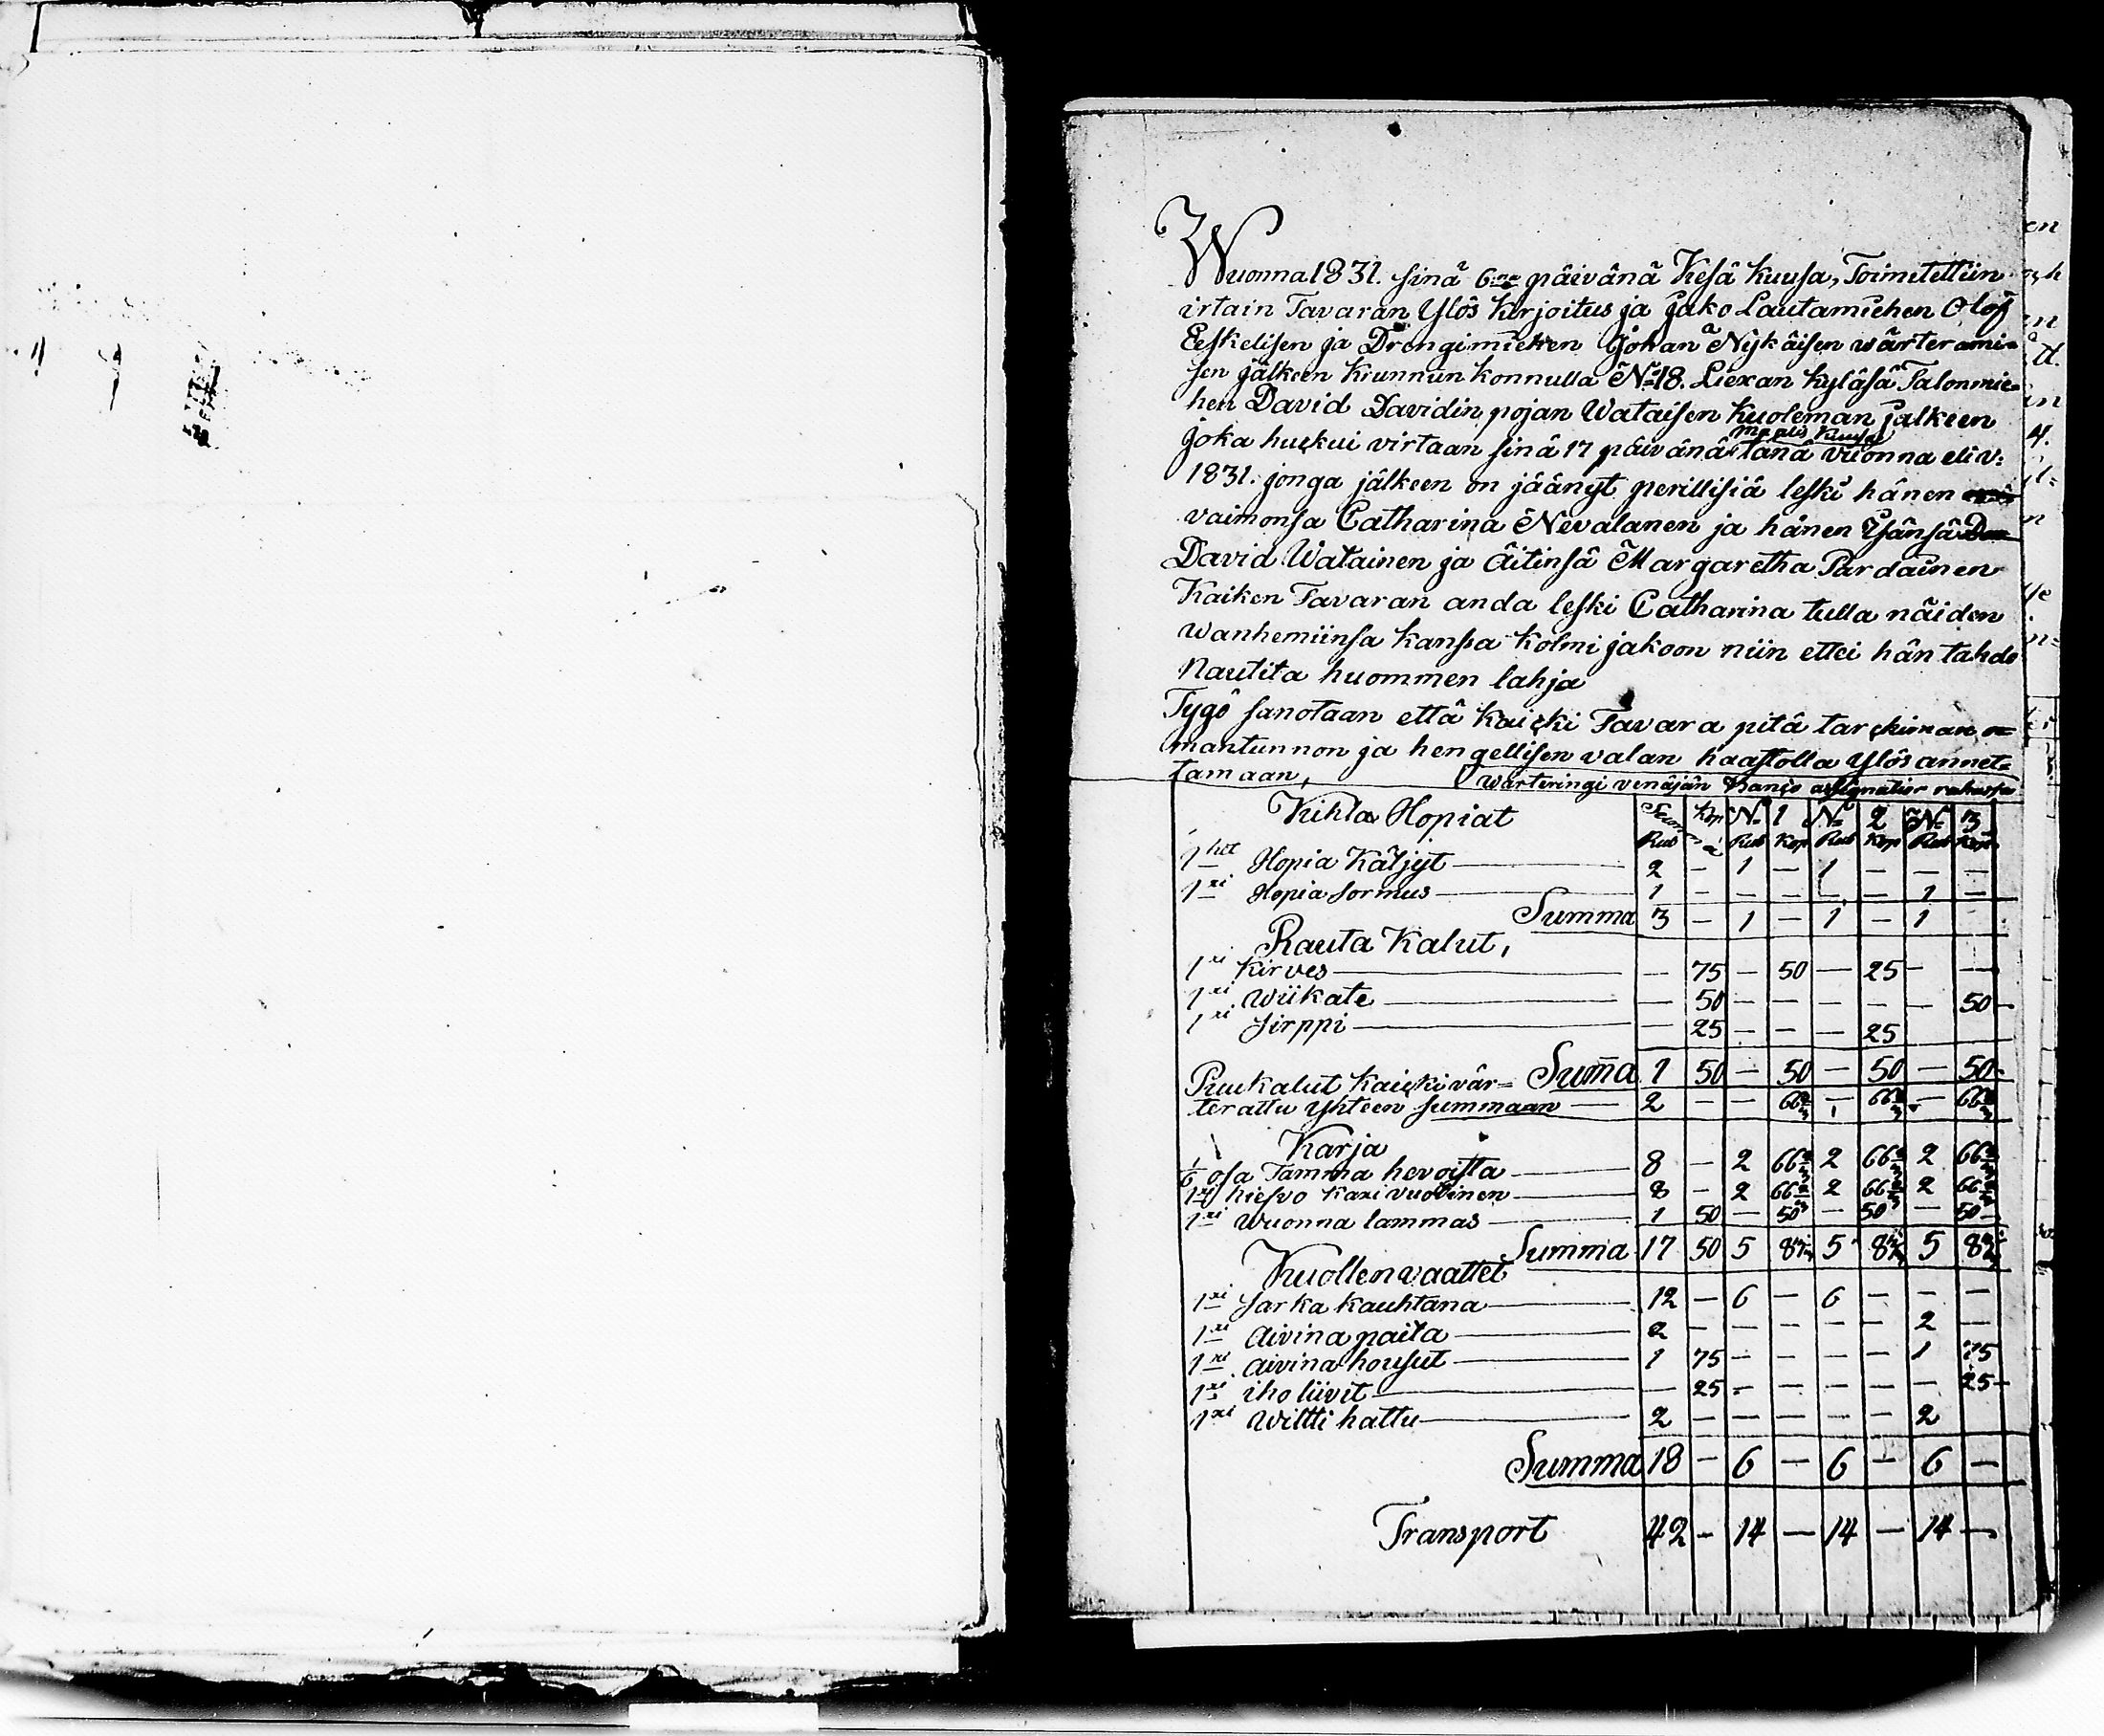 Wuonna 1831. sinä 6na päivänä Kesä kuusa, Toimitettiin
irtain Tavaran Ylös kirjoitus ja jako Lautamiehen Olof
Eeskelisen ja Drengimiehen Johan Nykäisen wärterämi=
sen jälkeen Krunnun konnulla No 18. Liexan kyläsä Talonmie=
hen David Davidin pojan Wataisen kuoleman jälkeen
maalis kuusa
joka huckui virtaan sinä 17 päivänä tänä vuonna eli v:
1831. jonga jälkeen on jäänyt perillisiä leski hänen
vaimonsa Catharina Nevalanen ja hänen Ysänsä
David Watainen ja äitinsä Margaretha Pardainen
Kaiken Tavaran anda leski Catharina tulla näiden
wanhemiinsa kanssa kolmi jakoon niin ettei hän tahdo
Nautita huommen lahja
Tygö sanotaan että kaicki Tavara pitä tarckiman o=
mantunnon ja hengellisen valan haastolla ylös annet=
tamaan,
wärteringi venäjän Banco assignatior rahasa
Kihla Hopiat Summa Kop No 1 No 2 No 3
Rub Rub Kop Rub Kop Rub Kop
1het Hopia Käljyt 2 — 1 — 1 — — —
1xi Hopia sormus 1 — — — — — 1 —
Summa 3 — 1 — 1 — 1
Rauta Kalut,
1xi Kirves — 75 — 50 — 25 — —
1xi Wiikate — 50 — — — — — 50 —
1xi Sirppi — 25 — — — 25
Suma 1 50 — 50 — 50 — 50
Puukalut kaicki vär=
terattu yhteen summaan 2 — — 66 2/3 — 66 2/3 — 66 2/3
Karja
1/6 osa Tamma hevoista 8 — 2 66 2/3 2 66 2/3 2 66 2/3
1xi hiehvo kaxi vuotinen 8 — 2 66 2/3 2 66 2/3 2 66 2/3
1xi Wuonna lammas 1 50 — 50 — 50 — 50
Summa 17 50 5 83 1/3 5 83 1/3 5 83 1/3
Kuollen vaattet
1xi Sarka kauhtana 12 — 6 — 6 — — —
1xi Aivina paita 2 — — — — — 2 —
1xi aivina housut 1 75 — — — — 1 75
1xi iho liivit — 25 — — — — — 25 —
1xi Wiltti hattu 2 — — — — — 2
Summa 18 — 6 — 6 — 6 —
Transport 42 — 14 — 14 — 14 —